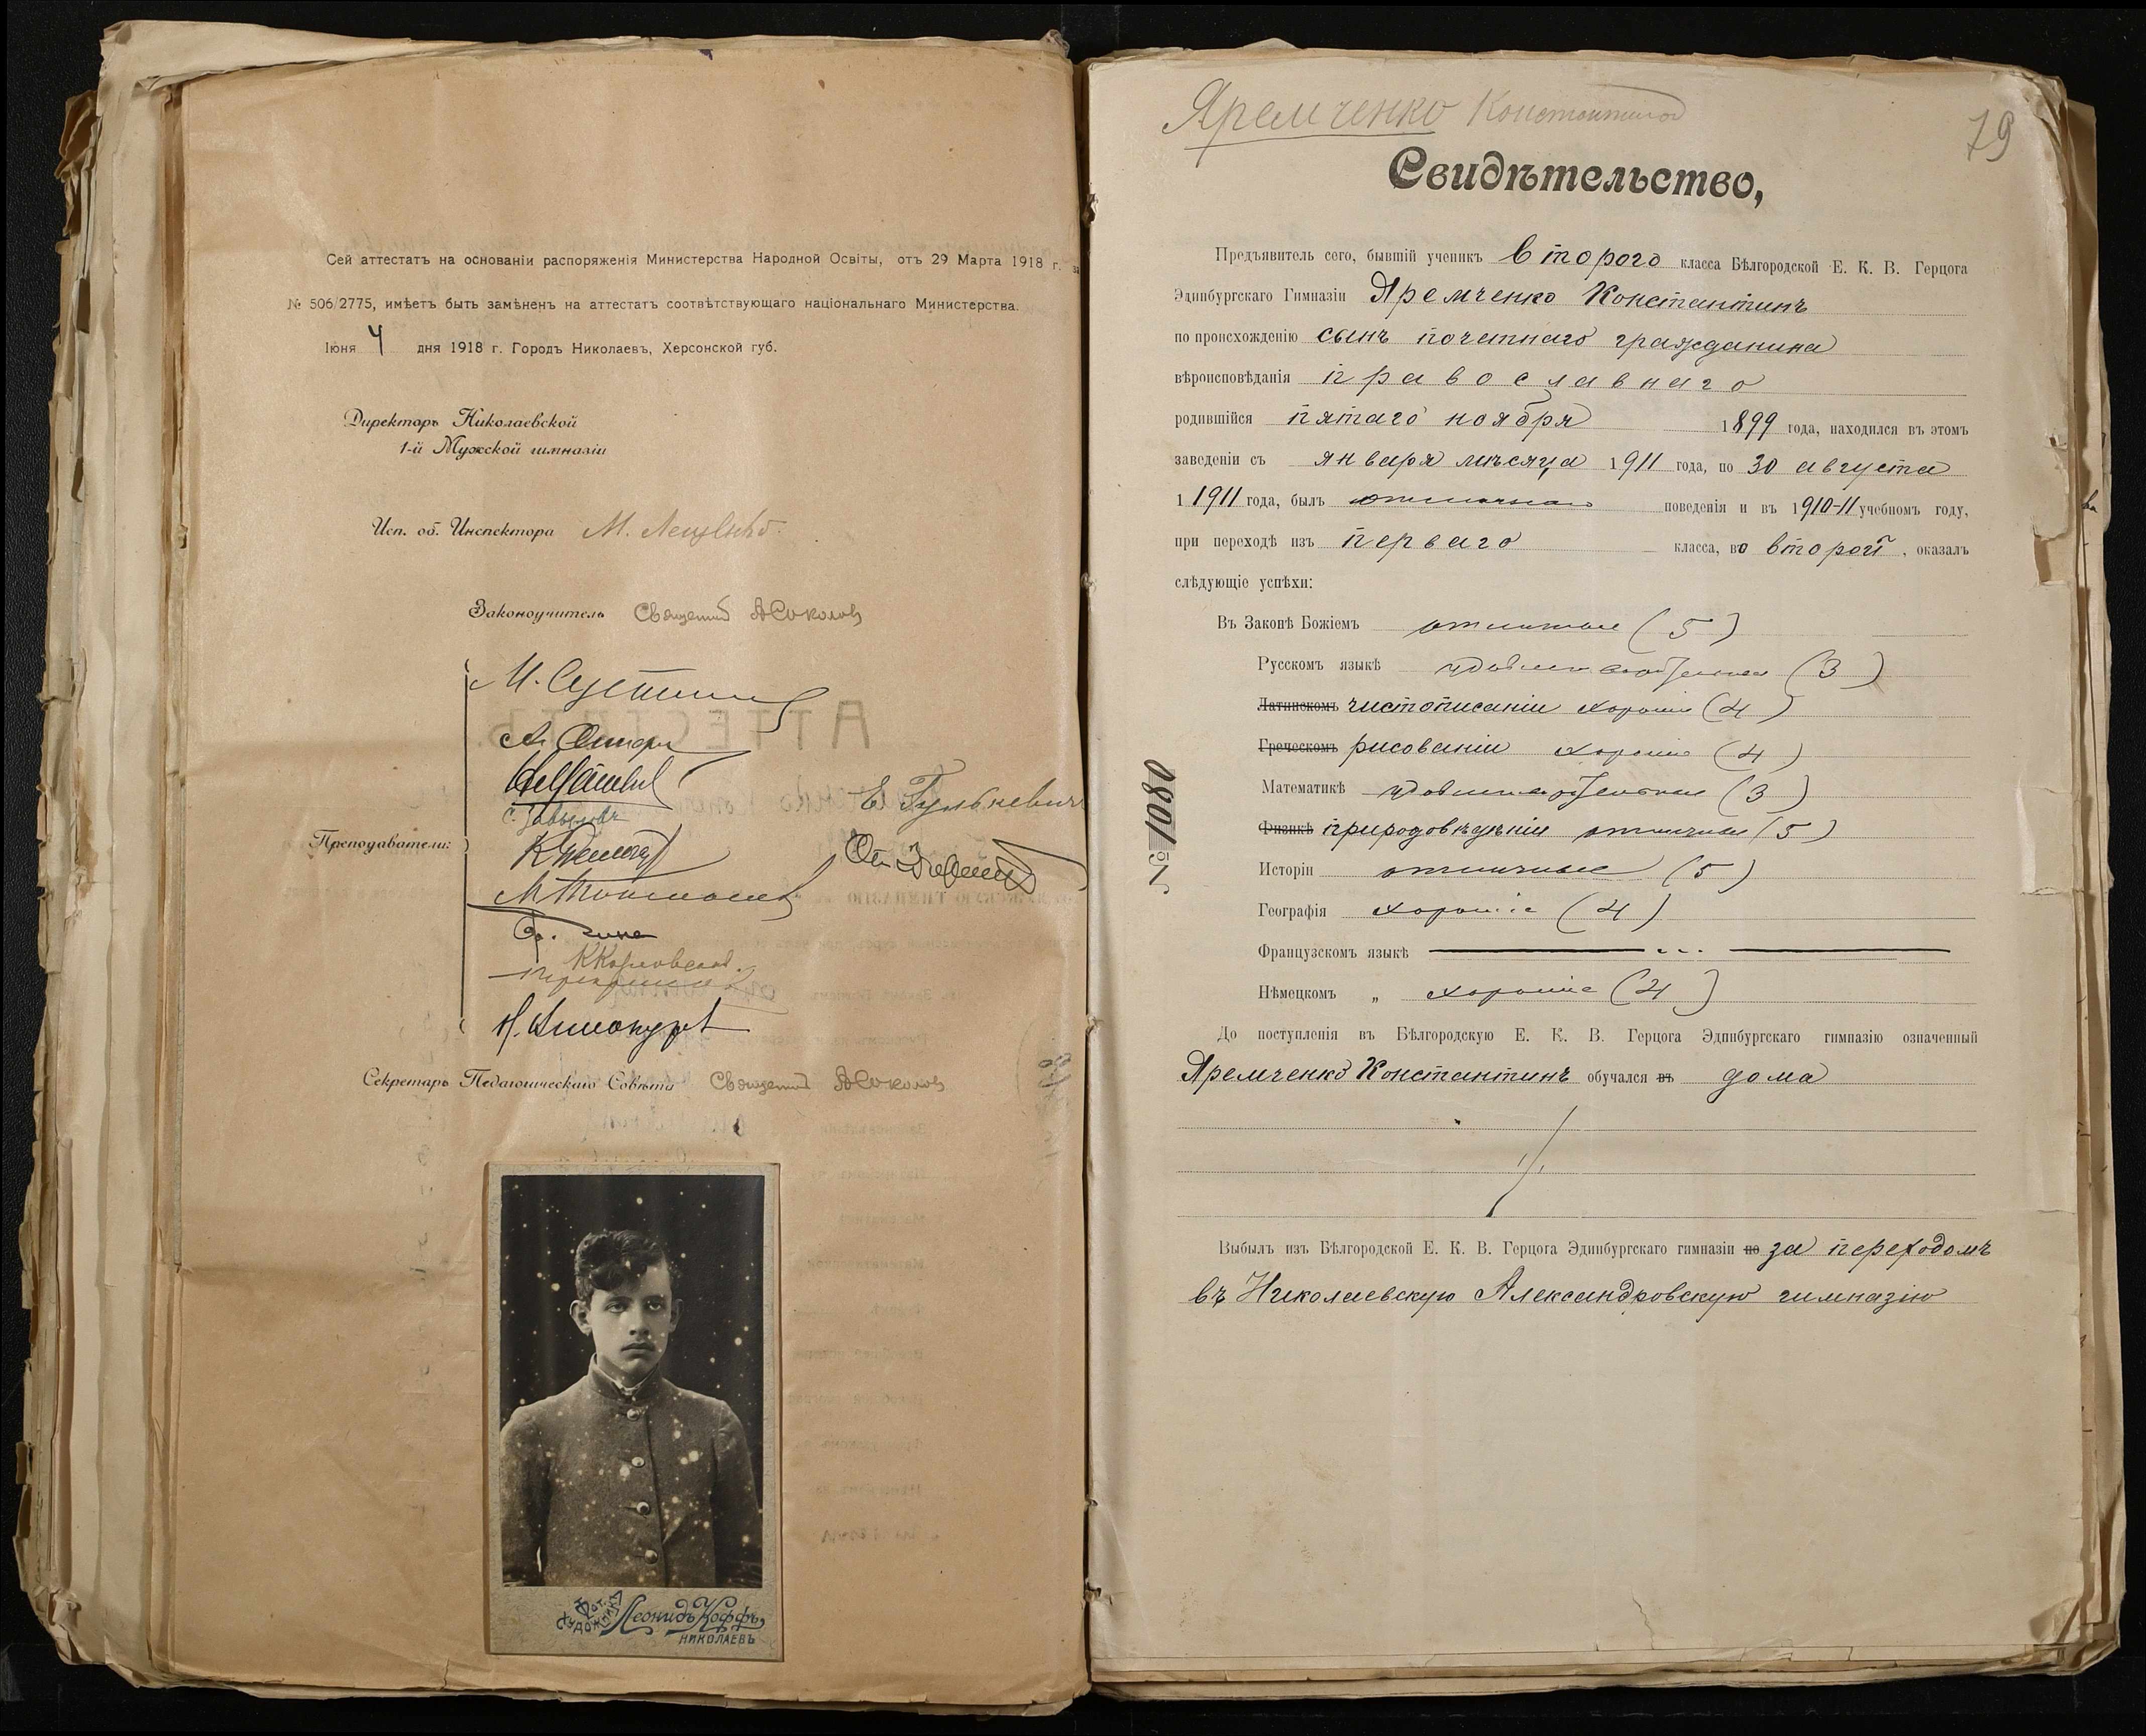 Сей аттестатъ на основаніи распоряженія Министерства Народной Освіты, отъ 29 Марта 1918 г. за
№ 506/2775, имѣетъ быть замѣненъ на аттестатъ соотвѣтствующаго національнаго Министерства.
Іюня 4 дня 1918 г. Городъ Николаевъ, Херсонской губ.
Директоръ Николаевской
1-й Мужской гимназіи
Исп. об. Инспектора М. Лещенко.
Законоучитель Священникъ А Соколовъ
Преподаватели:
Е Гулькевичъ
Секретарь Педагогическаго Совѣта Священникъ А Соколовъ
Фот. Художника Леонидъ Коффъ,
НИКОЛАЕВЪ
Яремченко Константинъ
79
Свидѣтельство,
Предъявитель сего, бывшій ученикъ второго класса Бѣлгородской Е. К. В. Герцога
Эдинбургскаго Гимназіи Яремченко Константинъ
по происхожденію сынъ почетнаго гражданина
вѣроисповѣданія православнаго
родившійся пятаго ноября 1899 года, находился въ этомъ
заведеніи съ января мѣсяца 1911 года, по 30 августа
1 1911 года, былъ отличнаго поведенія и въ 1910-11 учебномъ году,
при переходѣ изъ перваго класса, во второй, оказалъ
слѣдующіе успѣхи:
Въ Законѣ Божіемъ отличные (5)
Русскомъ языкѣ удовлетворительные (3)
Латинскомъ чистописаніи хорошіе (4)
Греческомъ рисованіи хорошіе (4)
Математикѣ удовлетворительные (3)
Физикѣ природовѣдѣніи отличные (5)
Исторіи отличные (5)
Географія хорошіе (4)
Французскомъ языкѣ
Нѣмецкомъ „ хорошіе (4)
№ 1080
До поступленія въ Бѣлгородскую Е. К. В. Герцога Эдинбургскаго гимназію означенный
Яремченко Константинъ обучался въ дома
Выбылъ изъ Бѣлгородской Е. К. В. Герцога Эдинбургскаго гимназіи по за переходомъ
въ Николаевскую Александровскую гимназію